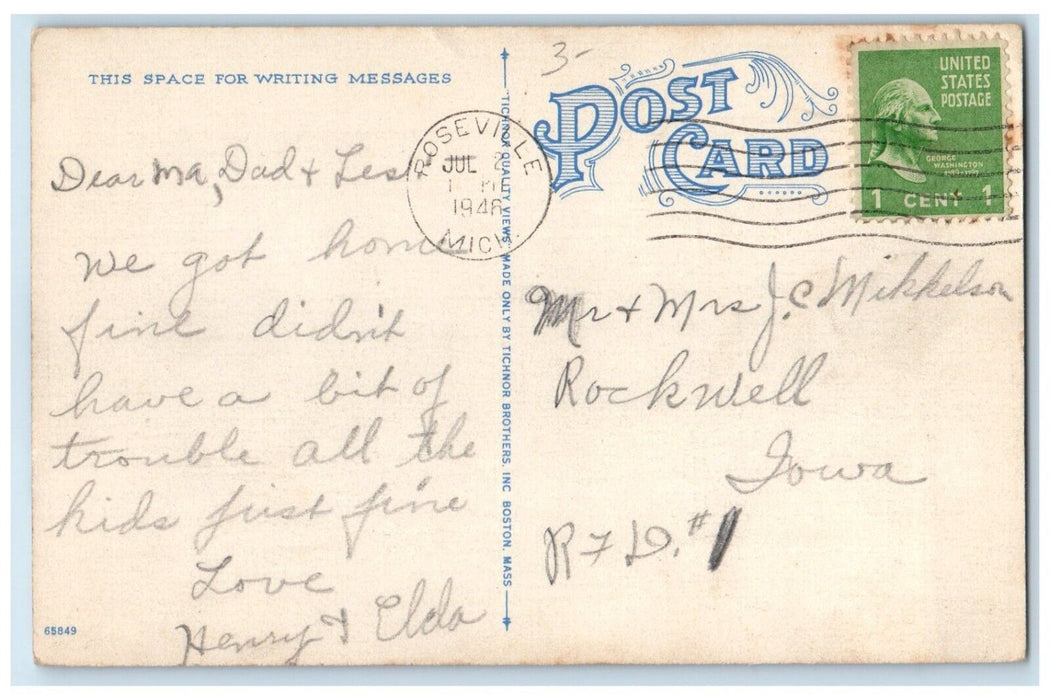 THIS SPACE FOR WRITING MESSAGES
Dear Ma, Dad & Les
We got home
fine didn't
have a bit of
trouble all the
kids just fine
Love
Henry & Elda
65849
"TICHNOR QUALITY VIEWS," MADE ONLY BY TICHNOR BROTHERS, INC. BOSTON, MASS.
3-
POST
CARD
ROSEVILLE
JUL 2
1946
MICH.
UNITED
STATES
POSTAGE
GEORGE
WASHINGTON
1 CENT 1
Mr & Mrs J.C Mikkelson
Rockwell
Iowa
R F D. #1